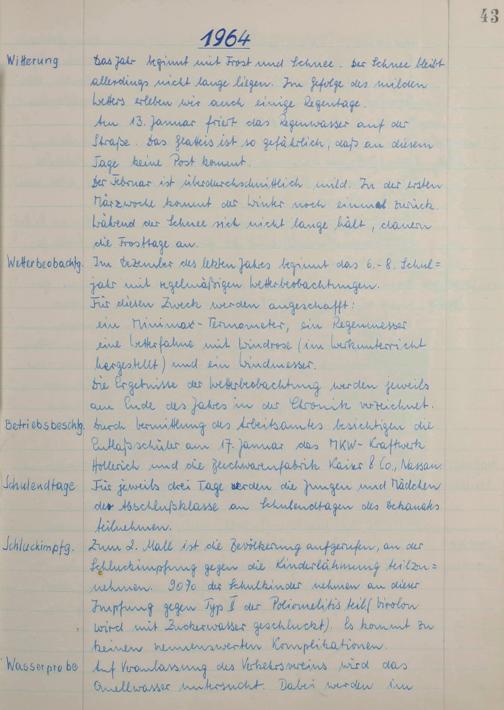 43
1964
Witterung Das Jahr beginnt mit Frost und Schnee. Der Schnee bleibt
allerdings nicht lange liegen. Im Gefolge des milden
Wetters erleben wir auch einige Regentage.
Am 13. Januar friert das Regenwasser auf der
Straße. Das Glatteis ist so gefährlich, daß an diesem
Tage keine Post kommt.
Der Februar ist überdurchschnittlich mild. In der ersten
Märzwoche kommt der Winter noch einmal zurück.
Während der Schnee sich nicht lange hält, dauern
die Frosttage an.
Wetterbeobachtg. Im Dezember des letzten Jahres beginnt das 6.-8. Schul=
jahr mit regelmäßigen Wetterbeobachtungen.
Für diesen Zweck werden angeschafft:
ein Minimax-Termometer, ein Regenmesser
eine Wetterfahne mit Windrose (im Werkunterricht
hergestellt) und ein Windmesser.
Die Ergebnisse der Wetterbeobachtung werden jeweils
am Ende des Jahres in der Chronik verzeichnet.
Betriebsbeschtg. Durch Vermittlung des Arbeitsamtes besichtigen die
Entlaßschüler am 17. Januar das MKW-Kraftwerk
Hollerich und die Blechwarenfabrik Kaiser & Co., Nassau.
Schulendtage Für jeweils drei Tage werden die Jungen und Mädchen
der Abschlußklasse an Schulendtagen des Dekanats
teilnehmen.
Schluckimpfg. Zum 2. Mall ist die Bevölkerung aufgerufen, an der
Schluckimpfung gegen die Kinderlähmung teilzu=
nehmen. 90% der Schulkinder nehmen an dieser
Impfung gegen Typ I der Poliomelitis teil (
wird mit Zuckerwasser geschluckt). Es kommt zu
keinen nennenswerten Komplikationen.
Wasserprobe Auf Veranlassung des Verkehrsvereins wird das
Quellwasser untersucht. Dabei werden im